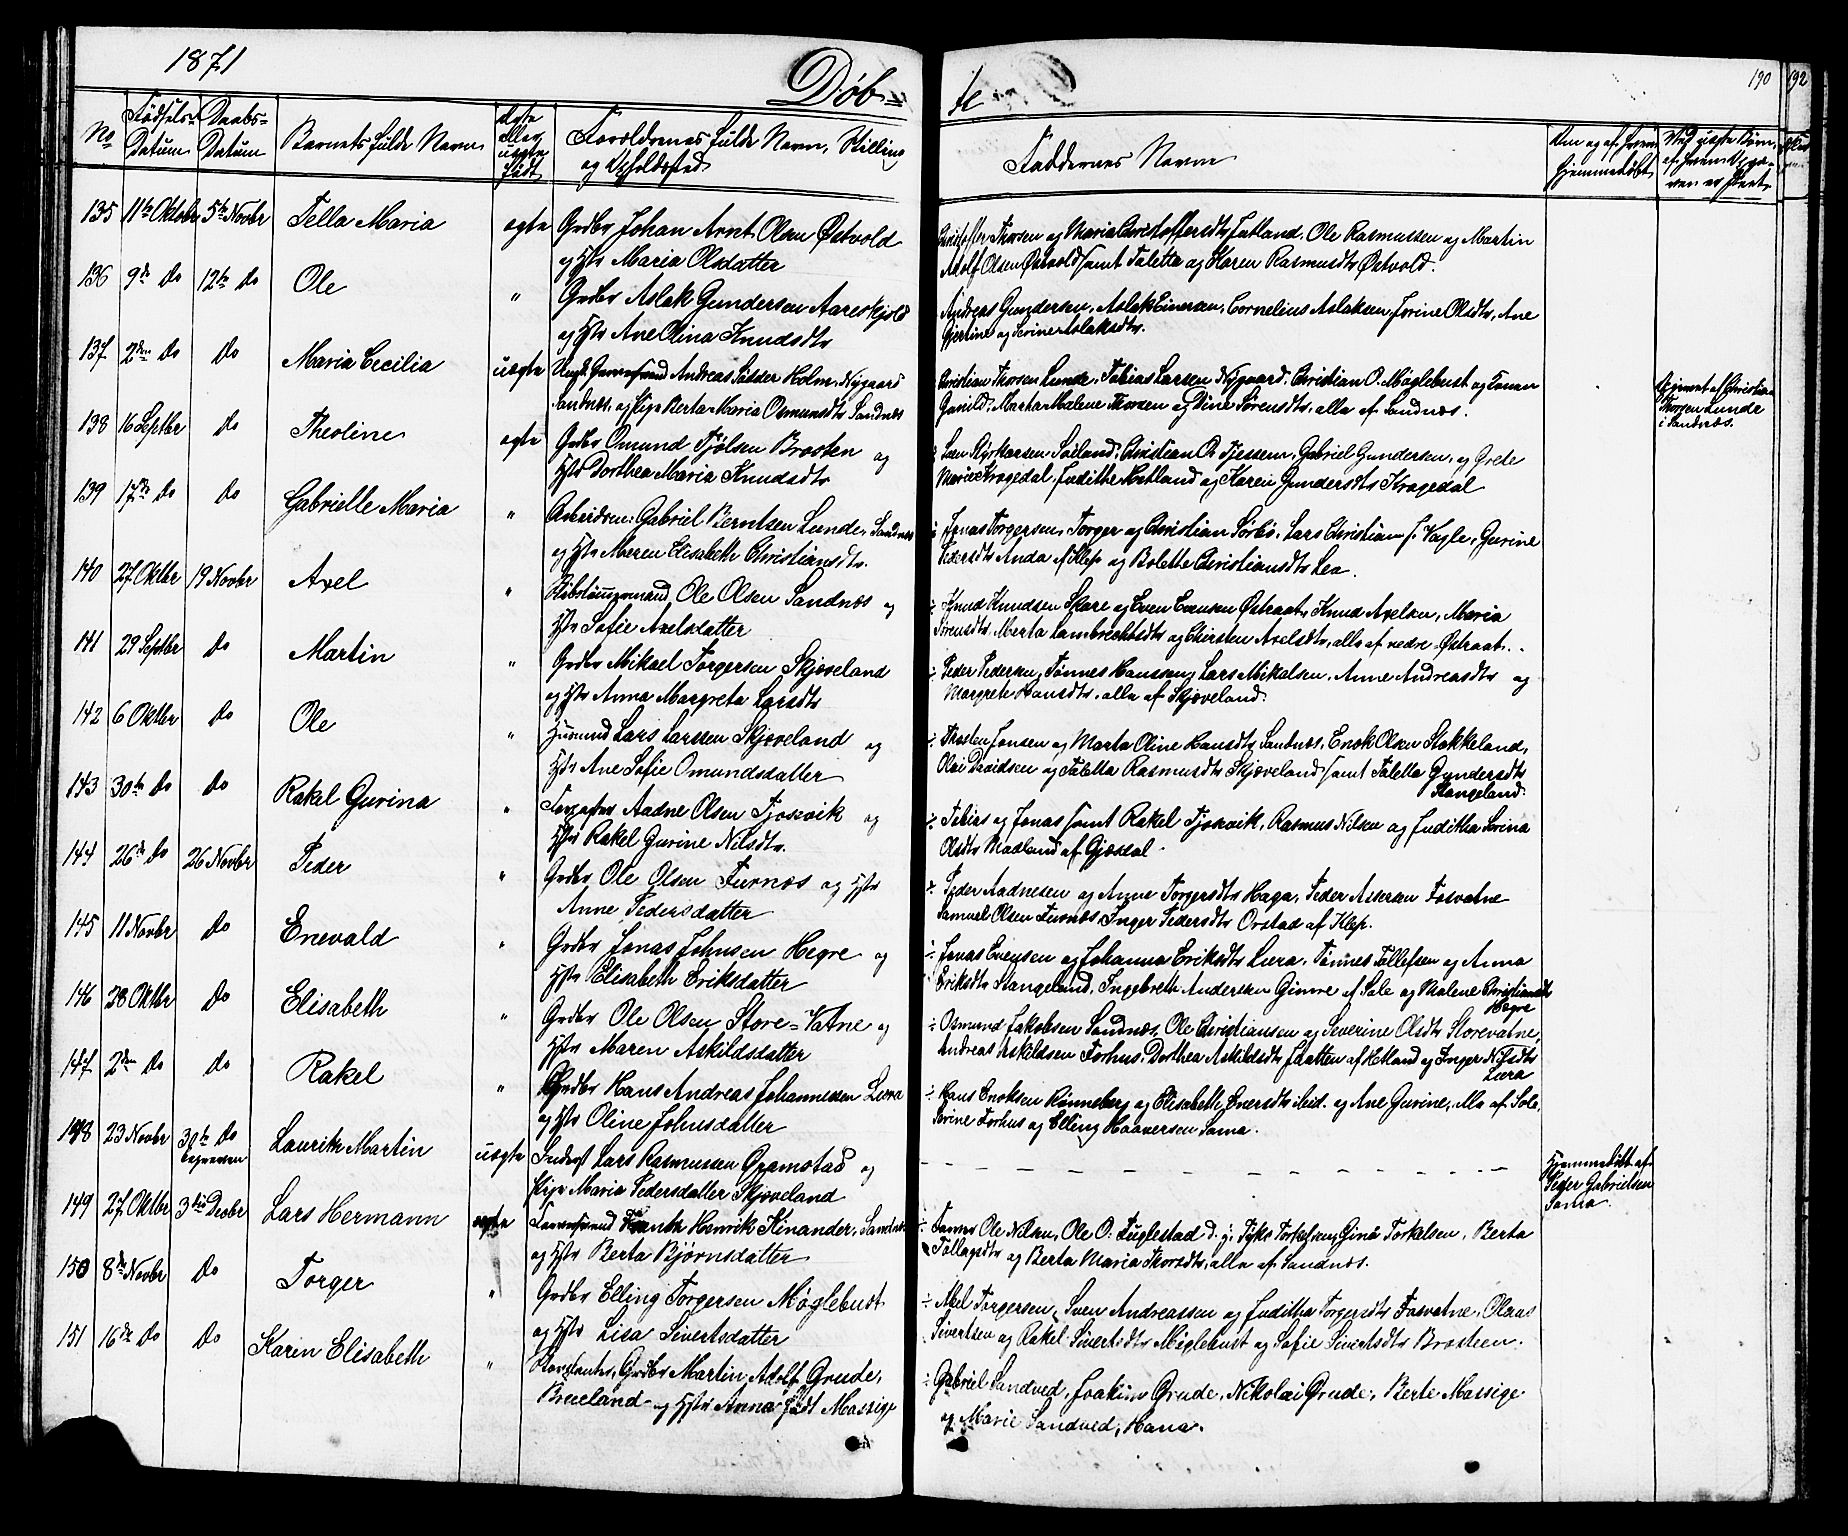 1871
Døb-
te
190
192
No
Fødsels-
Datum
Daabs-
Datum
Barnets fulde Navn
ægte
eller
uægte
født
Forældrenes fulde Navn, Stilling
og Opholdssted
Faddernes Navne
Om og af hvem
hjemmedøbt
135 11te Oktobr 5te Novbr Tella Maria ægte Grdbr Johan Arnt Olsen Østvold
og Hstr Maria Olsdatter
Christoffer Thorsen og Maria Christoffersdtr Fatland, Ole Rasmussen og Martin
Adolf Olsen Østvold samt Taletta og Karen Rasmusdtr Østvold.
136 9de Do 12te Do Ole " Grdbr Aslak Gundersen Aareskjold
og Hstr Ane Olina Knudsdtr
Andreas Gundersen, Aslak Einersen, Cornelius Aslaksen, Jorine Olsdtr, Ane
Gjertine og Serine Aslaksdtr.
137 2den Do Do Maria Cecilia uægte Ungk. Andreas Holm, Nygaard
Sandnæs, og Pige Berta Maria Osmundsdtr Sandnæs
Christian Thorsen Lunde, Tobias Larsen Nygaard, Christian O. Møglebust og Konen
Gunild, Marta Malene Thorsen og Dine Sørensdtr, alle af Sandnæs.
Christian
Thorsen Lunde
i Sandnæs.
138 16 Septbr Do Theoline ægte Grdbr Omund Tjølsen Brosten og
Hstr Dorthea Maria Knudsdtr
Christian O. Tjessem, Gabriel Gundersen, og Grete
Marie Kragedal, Judithe Hetland og Karen Gundersdtr Kragedal
139 17de Do Do Gabrielle Maria " Gabriel Berntsen Lunde, Sandnæs
og Hstr Maren Elisabeth Christiansdtr.
Jonas Torgersen, Torger og Christian Sørbø, Lars Christian s. Vagle, Gurine
Pedersdtr Anda af Klep og Bolette Christiansdtr Lea.
140 27 Oktbr 19 Novbr Axel " Skibstømmermand Ole Olsen Sandnæs og
Hstr Sofie Axelsdatter
÷ Knud Knudsen Skare og Even Evensen Østraat, Knud Axelsen, Maria
Sørensdtr, Merta Lambrechtsdtr og Chirsten Axelsdtr, alle af nedre Østraat.
141 29 Septbr Do Martin " Grdbr Mikael Torgersen Skjæveland
og Hstr Anna Margreta Larsdtr
÷ Peder Pedersen, Tønnes Hansen, Lars Mikalsen, Anne Andreasdtr og
Margrete Hansdtr, alle af Skjæveland.
142 6 Oktbr Do Ole " Husmnd Lars Larssen Skjæveland og
Hstr Ane Sofie Omundsdatter
÷ Thosten Jonsen og Marta Oline Hansdtr, Sandnæs, Enok Olsen Stokkeland,
Olai Davidsen og Taletta Rasmusdtr Skjæveland samt Taletta Gundersdtr
Stangeland.
143 30te Do Do Rakel Gurina " Aadne Olsen Tjosevik og
Hstr Rakel Gurine Nilsdtr.
÷ Tobias og Jonas samt Rakel Tjosevik, Rasmus Nilsen og Juditha Serina
Olsdtr Madland af Gjæsdal
144 26de Do 26 Novbr Peder " Grdbr Ole Olsen Furnæs og Hstr
Anne Pedersdatter
Peder Aadnesen og Anne Torgersdtr Haga, Peder Assersen Fosvatne
Samuel Olsen Furnæs, Inger Pedersdtr Orstad af Klep.
145 11 Novbr Do Enevald " Grdbr Jonas Johnsen Hegre og
Hstr Elisabeth Eriksdatter
÷ Jonas Evensen og Johanna Eriksdtr Lura, Tønnes Tollefsen og Anna
Eriksdtr Stangeland, Ingebreth Andersen Gimre af Sole og Malene Christiansdtr
Hegre
146 28 Oktbr Do Elisabeth " Grdbr Ole Olsen Store-Vatne og
Hstr Maren Askildsdatter
÷ Osmund Jakobsen Sandnæs, Ole Christiansen og Severine Olsdtr Storevatne,
Andreas Askildsen Forhus, Dorthea Askildsdtr af Hetland og Inger Nilsdtr
Lura
147 2den Do Do Rakel " Grdbr Hans Andreas Johannessen Lura
og Hstr Oline Johnsdatter
÷ Hans Enoksen Rønneberg og Elisabeth Enersdtr ibid. og Ane Gurine, alle af Sole,
Serine Forhus og Elling Haaversen Soma.
148 23 Novbr 30te Do
begraven
Laurits Martin uægte Inderst Lars Rasmussen Gramstad og
Pige Maria Pedersdatter Skjæveland
Hjemmedøbt af
Peder Gabrielsen
Soma.
149 27 Oktbr 3die Decbr Lars Hermann ægte Frantz Henrik Kinander, Sandnæs
og Hstr Berta Bjørnsdatter
Ole Nilsen, Ole O. Fuglestad d. y. Tyke Torkelsen, Gina Torkelsen, Berta
Tollagsdtr og Berta Maria Thorsdtr, alle af Sandnæs.
150 8de Novbr Do Torger " Grdbr Elling Torgersen Møglebust
og Hstr Lisa Sivertsdatter
÷ Abel Torgersen, Sven Andreassen og Juditha Torgersdtr Fosvatne, Olaus
Sivertsen og Rakel Sivertsdtr Møglebust og Sofie Sivertsdtr Brosteen.
151 16de Do Do Karin Elisabeth " Grdbr Martin Adolf Grude,
Brueland og Hstr Anna født Massige
÷ Gabriel Sandved, Joakim Grude, Nikolai Grude, Berte Massige
og Marie Sandved, Hana.